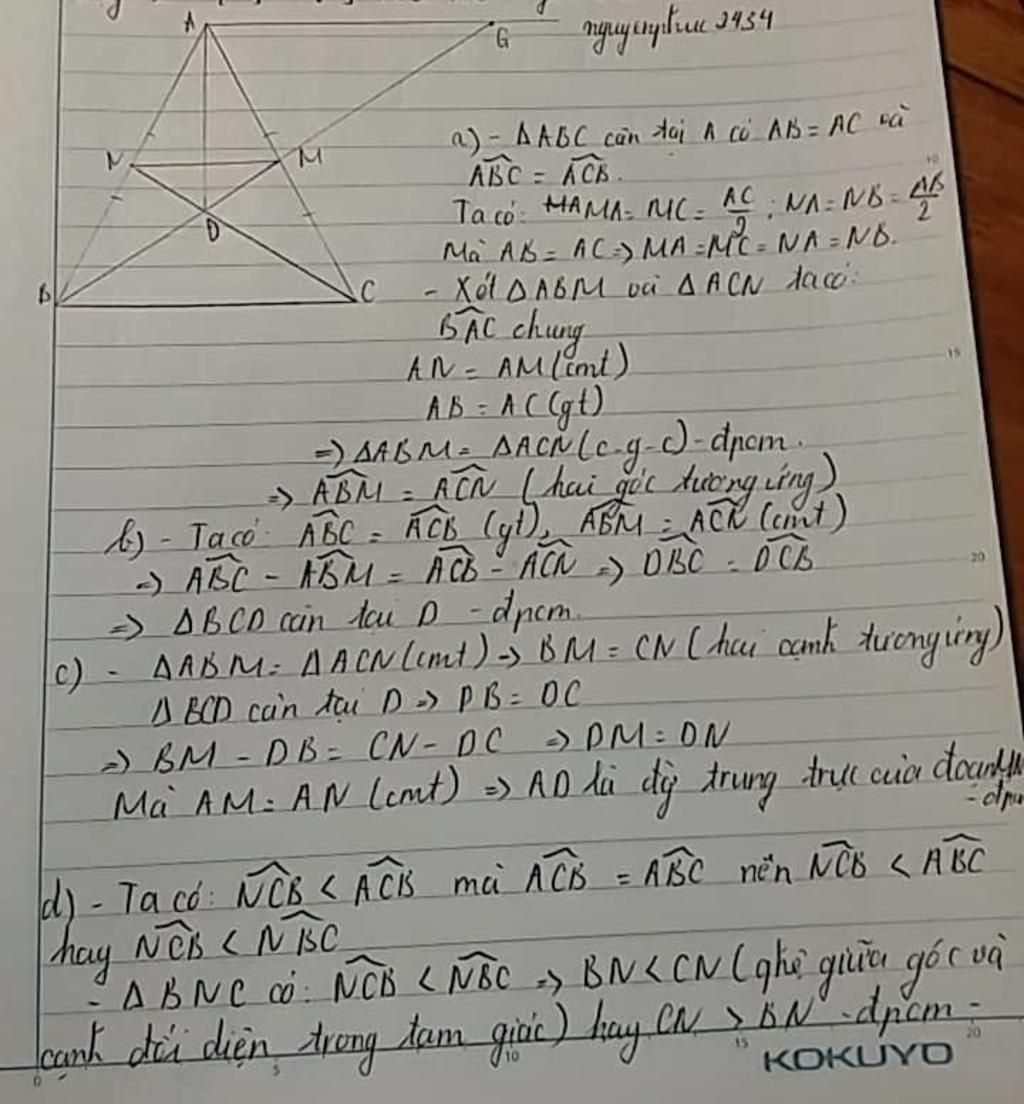 A
G
nguyenthuc 2434
N
M
D
B
C
a) - ΔABC cân tại A có AB = AC và
ABC = ACB.
Ta có: MA = MC = AC/2 ; NA = NB = AB/2
Mà AB = AC => MA = MC = NA = NB.
- Xét ΔABM và ΔACN ta có:
BAC chung
AN = AM (cmt)
AB = AC (gt)
=> ΔABM = ΔACN (c-g-c) - đpcm.
=> ABM = ACN (hai góc tương ứng)
b) - Ta có: ABC = ACB (gt), ABM = ACN (cmt)
=> ABC - ABM = ACB - ACN => DBC = DCB
=> ΔBCD cân tại D - đpcm.
c) - ΔABM = ΔACN (cmt) -> BM = CN (hai cạnh tương ứng)
ΔBCD cân tại D => DB = DC
=> BM - DB = CN - DC => DM = DN
Mà AM = AN (cmt) => AD là đg trung trực của đoạn
- đpcm
d) - Ta có: NCB < ACB mà ACB = ABC nên NCB < ABC
hay NCB < NBC
- ΔBNC có: NCB < NBC => BN < CN (qhệ giữa góc và
cạnh đối diện trong tam giác) hay CN > BN - đpcm -
0 5 10 15 20
KOKUYO
10
15
20